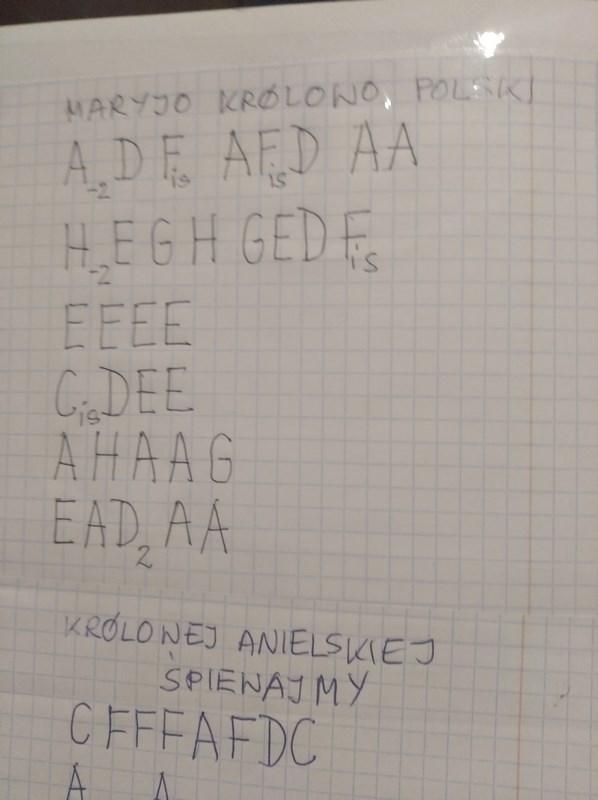 MARYJO KRÓLOWO, POLSKI
A-2 D Fis A Fis D A A
H-2 E G H G E D Fis
E E E E
Cis D E E
A H A A G
E A D2 A A
KRÓLOWEJ ANIELSKIEJ
ŚPIEWAJMY
C F F F A F D C